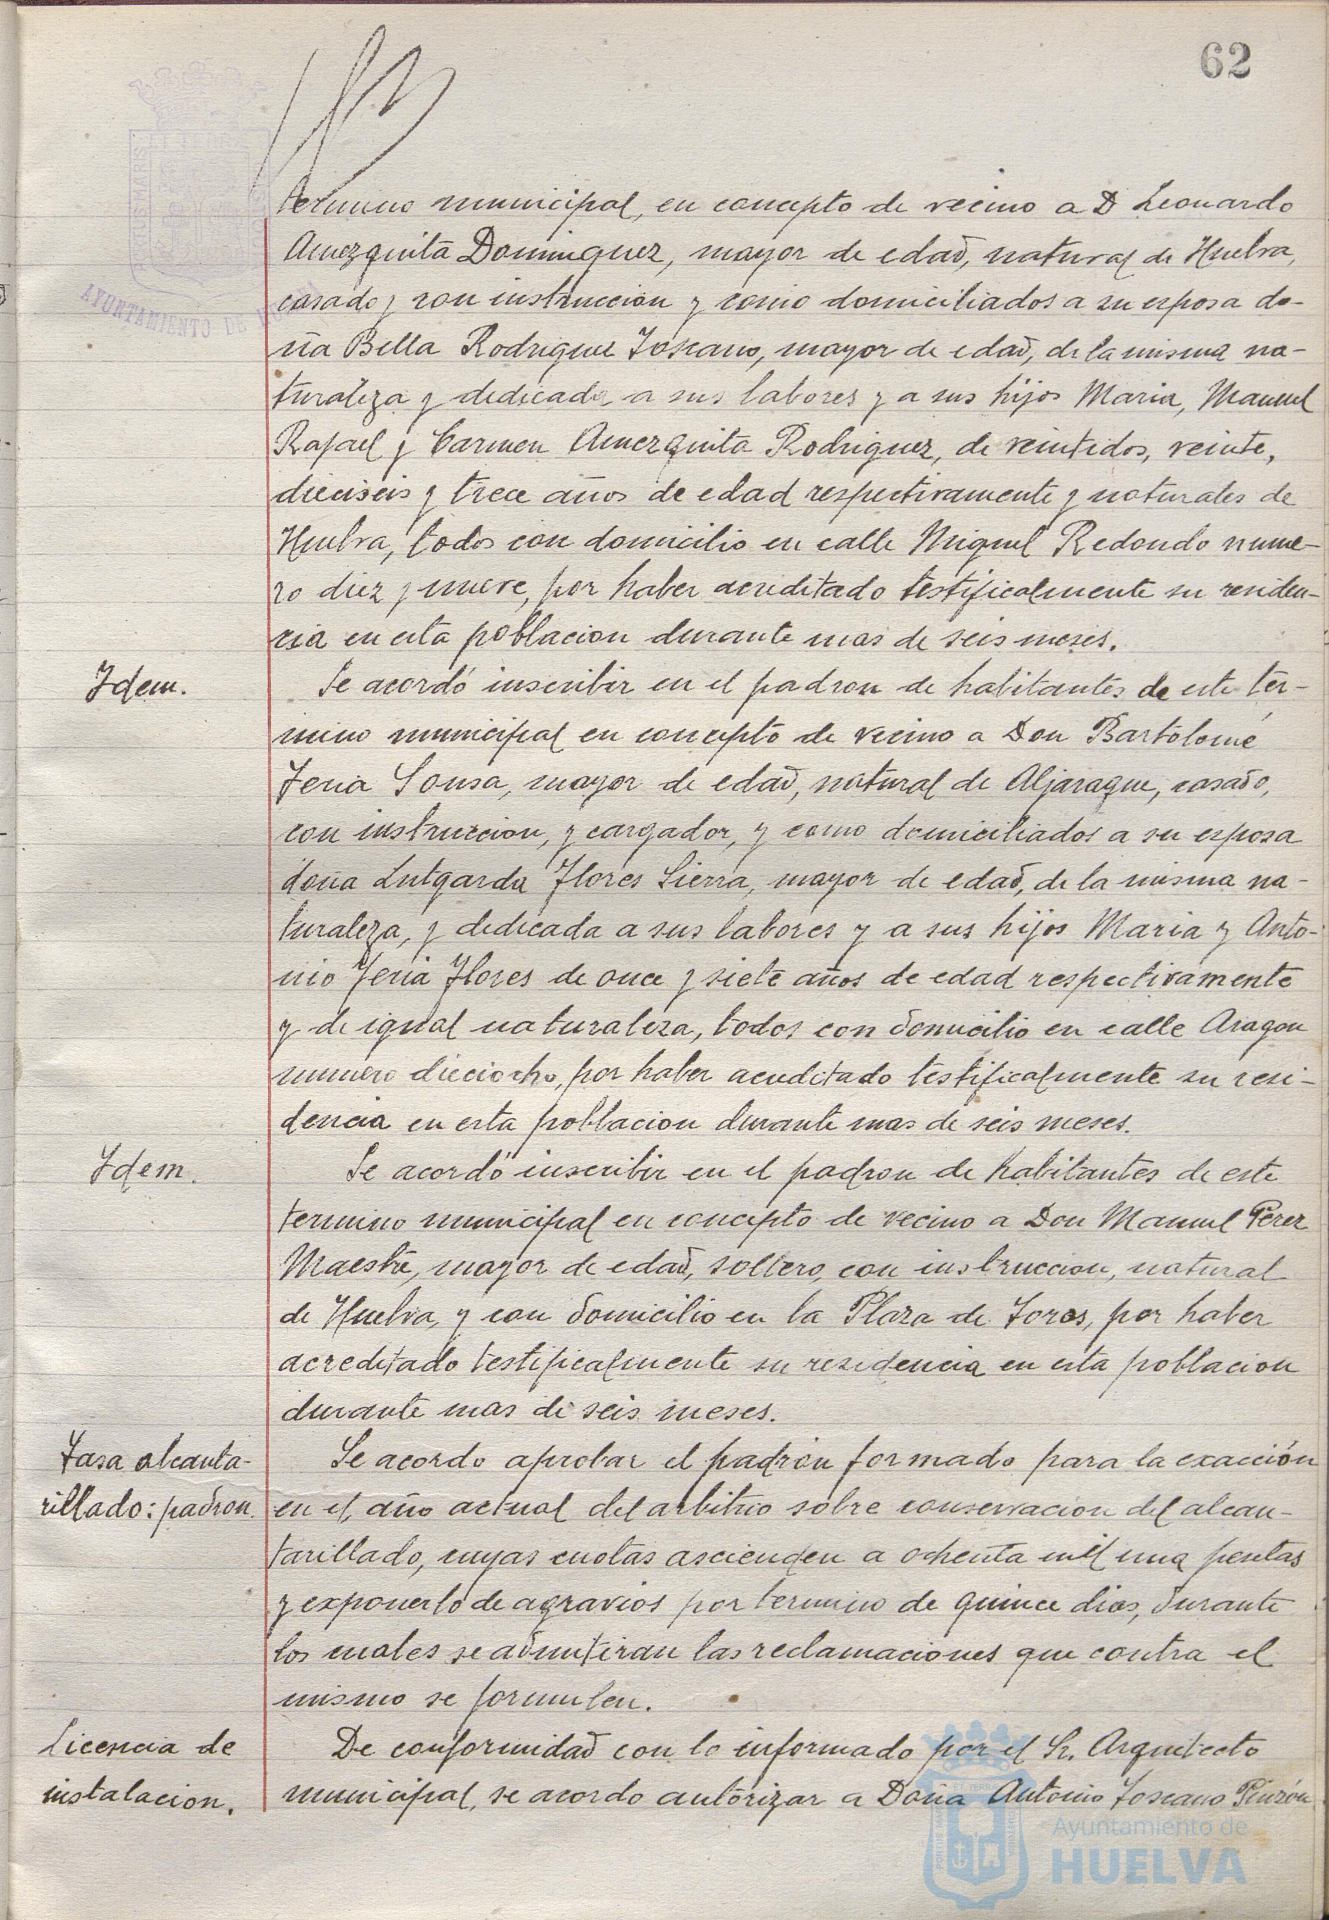 62
termino municipal, en concepto de vecino a D Leonardo
Amezquita Dominguez, mayor de edad, natural de Huelva,
casado y con instruccion y como domiciliados a su esposa do-
ña Bella Rodriguez Toscano, mayor de edad, de la misma na-
turaleza y dedicada a sus labores y a sus hijos Maria, Manuel
Rafael y Carmen Amezquita Rodriguez, de veintidos, veinte,
dieciseis y trece años de edad respectivamente y naturales de
Huelva, todos con domicilio en calle Miguel Redondo nume-
ro diez y nueve, por haber acreditado testificalmente su residen-
cia en esta poblacion durante mas de seis meses.
Idem.
Se acordó inscribir en el padron de habitantes de este ter-
mino municipal en concepto de vecino a Don Bartolomé
Feria Sousa, mayor de edad, natural de Aljaraque, casado,
con instruccion, y cargador, y como domiciliados a su esposa
doña Lutgarda Flores Sierra, mayor de edad, de la misma na-
turaleza, y dedicada a sus labores y a sus hijos Maria y Anto-
nio Feria Flores de once y siete años de edad respectivamente
y de igual naturaleza, todos con domicilio en calle Aragon
numero dieciocho, por haber acreditado testificalmente su resi-
dencia en esta poblacion durante mas de seis meses.
Idem.
Se acordó inscribir en el padron de habitantes de este
termino municipal en concepto de vecino a Don Manuel Perez
Maestre, mayor de edad, soltero, con instruccion, natural
de Huelva, y con domicilio en la Plaza de Toros, por haber
acreditado testificalmente su residencia en esta poblacion
durante mas de seis meses.
Tasa alcanta-
rillado: padron.
Se acordo aprobar el padrón formado para la exacción
en el año actual del arbitrio sobre conservacion del alcan-
tarillado, cuyas cuotas ascienden a ochenta mil una pesetas
y exponerlo de agravios por termino de quince dias, durante
los cuales se admitiran las reclamaciones que contra el
mismo se formulen.
Licencia de
instalacion.
De conformidad con lo informado por el Sr. Arquitecto
municipal, se acordo autorizar a Doña Antonio Toscano Pinzón
AYUNTAMIENTO DE
Ayuntamiento de
HUELVA